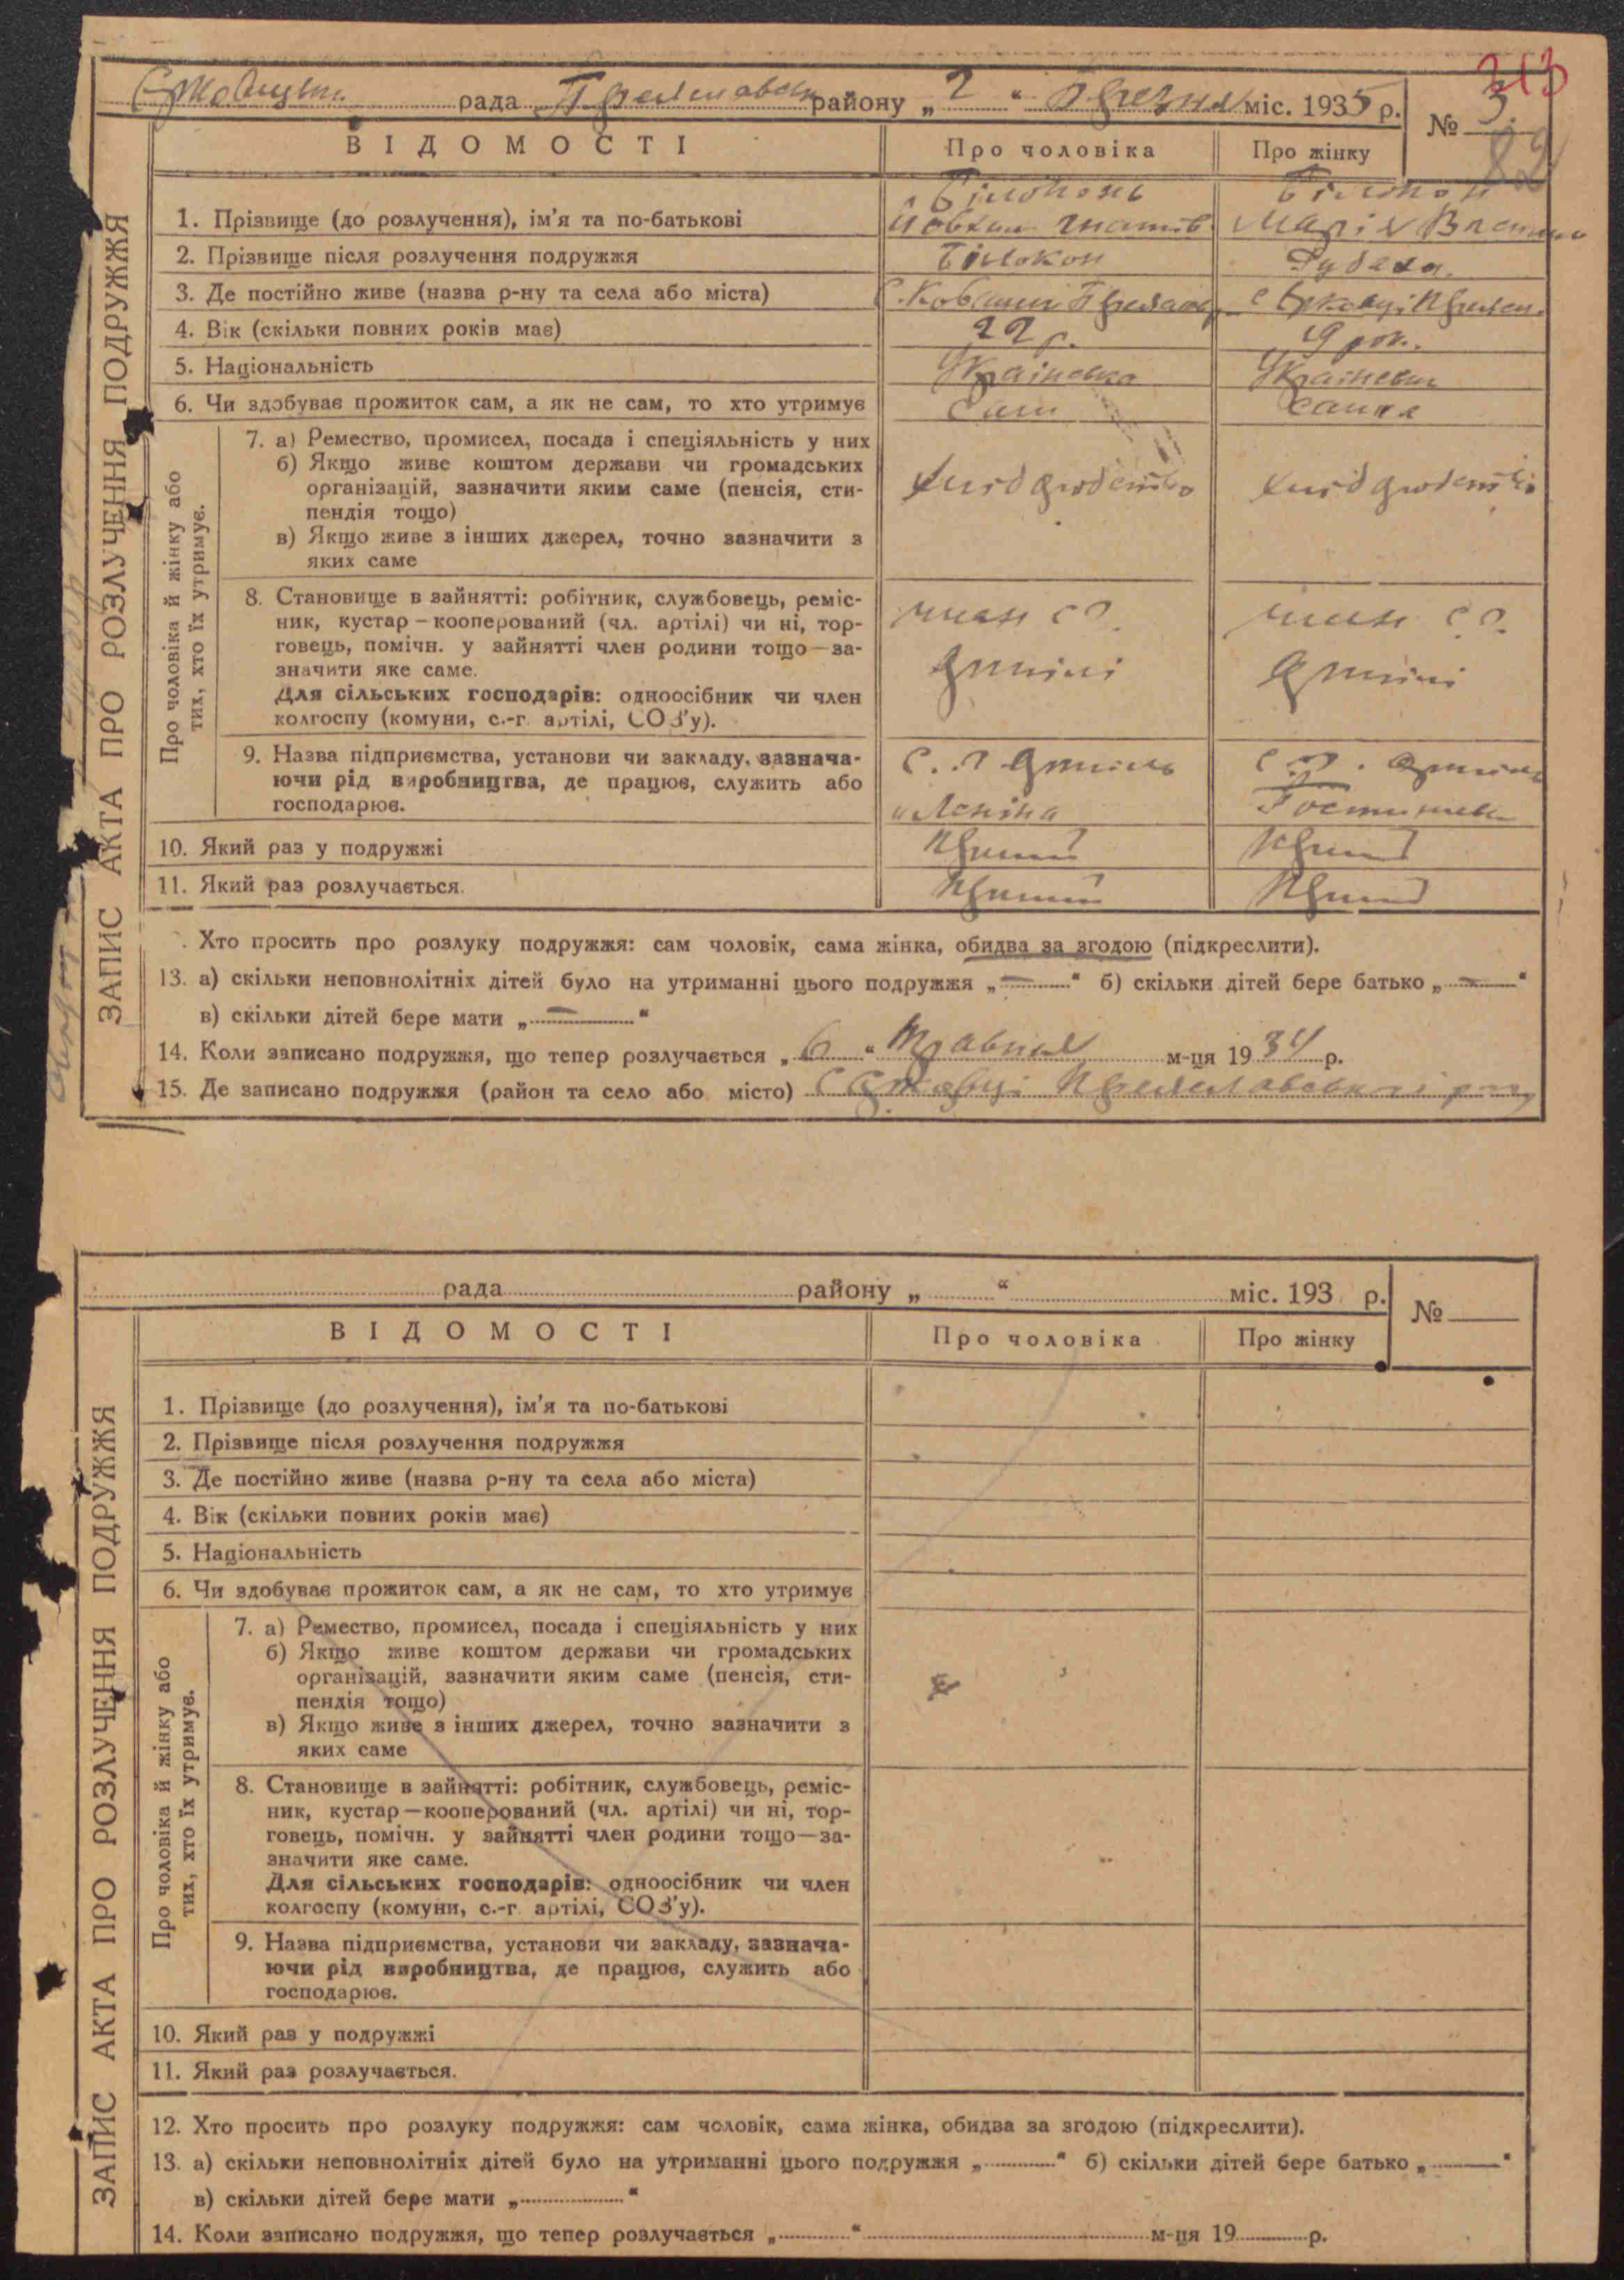 313
рада районУ „ 2 “ Березня міс. 1935 р.
№ 3.
82
ВІДОМОСТІ
Про чоловіка
Про жінку
ЗАПИС АКТА ПРО РОЗЛУЧЕННЯ ПОДРУЖЖЯ
1. Прізвище (до розлучення), ім'я та по-батькові
Білоконь
Білокон
Марія
2. Прізвище після розлучення подружжя
Білокон
3. Де постійно живе (назва р-ну та села або міста)
4. Вік (скільки повних років має)
22 р.
19 рок.
5. Національність
Українець
Українець
6. Чи здобуває прожиток сам, а як не сам, то хто утримує
Сам
Сама
Про чоловіка й жінку або
тих, хто їх утримує.
7. а) Ремество, промисел, посада і спеціяльність у них
б) Якщо живе коштом держави чи громадських
організацій, зазначити яким саме (пенсія, сти-
пендія тощо)
в) Якщо живе з інших джерел, точно зазначити з
яких саме
хлібаробство
хлібаробство
8. Становище в зайнятті: робітник, службовець, реміс-
ник, кустар – кооперований (чл. артілі) чи ні, тор-
говець, помічн. у зайнятті член родини тощо—за-
значити яке саме.
Для сільських господарів: одноосібник чи член
колгоспу (комуни, с.-г. артілі, СОЗ'у).
член с г.
артілі
член с.г.
артілі
9. Назва підприємства, установи чи закладу, зазнача-
ючи рід виробництва, де працює, служить або
господарює.
с. г артіль
Леніна
с.г. артіль
10. Який раз у подружжі
11. Який раз розлучається.
Хто просить про розлуку подружжя: сам чоловік, сама жінка, обидва за згодою (підкреслити).
13. а) скільки неповнолітніх дітей було на утриманні цього подружжя „ — “ б) скільки дітей бере батько „ — “
в) скільки дітей бере мати „ — “
14. Коли записано подружжя, що тепер розлучається „ 6 “ Травня м-ця 19 34 р.
15. Де записано подружжя (район та село або місто)
рада району „ “ міс. 193 р.
№
ВІДОМОСТІ
Про чоловіка
Про жінку
ЗАПИС АКТА ПРО РОЗЛУЧЕННЯ ПОДРУЖЖЯ
1. Прізвище (до розлучення), ім'я та по-батькові
2. Прізвище після розлучення подружжя
3. Де постійно живе (назва р-ну та села або міста)
4. Вік (скільки повних років має)
5. Національність
6. Чи здобуває прожиток сам, а як не сам, то хто утримує
Про чоловіка й жінку або
тих, хто їх утримує.
7. а) Ремество, промисел, посада і спеціяльність у них
б) Якщо живе коштом держави чи громадських
організацій, зазначити яким саме (пенсія, сти-
пендія тощо)
в) Якщо живе з інших джерел, точно зазначити з
яких саме
8. Становище в зайнятті: робітник, службовець, реміс-
ник, кустар—кооперований (чл. артілі) чи ні, тор-
говець, помічн. у зайнятті член родини тощо—за-
значити яке саме.
Для сільських господарів: одноосібник чи член
колгоспу (комуни, с.-г. артілі, СОЗ'у).
9. Назва підприємства, установи чи закладу, зазнача-
ючи рід виробництва, де працює, служить або
господарює.
10. Який раз у подружжі
11. Який раз розлучається.
12. Хто просить про розлуку подружжя: сам чоловік, сама жінка, обидва за згодою (підкреслити).
13. а) скільки неповнолітніх дітей було на утриманні цього подружжя „ “ б) скільки дітей бере батько „ “
в) скільки дітей бере мати „ “
14. Коли записано подружжя, що тепер розлучається „ “ м-ця 19 р.